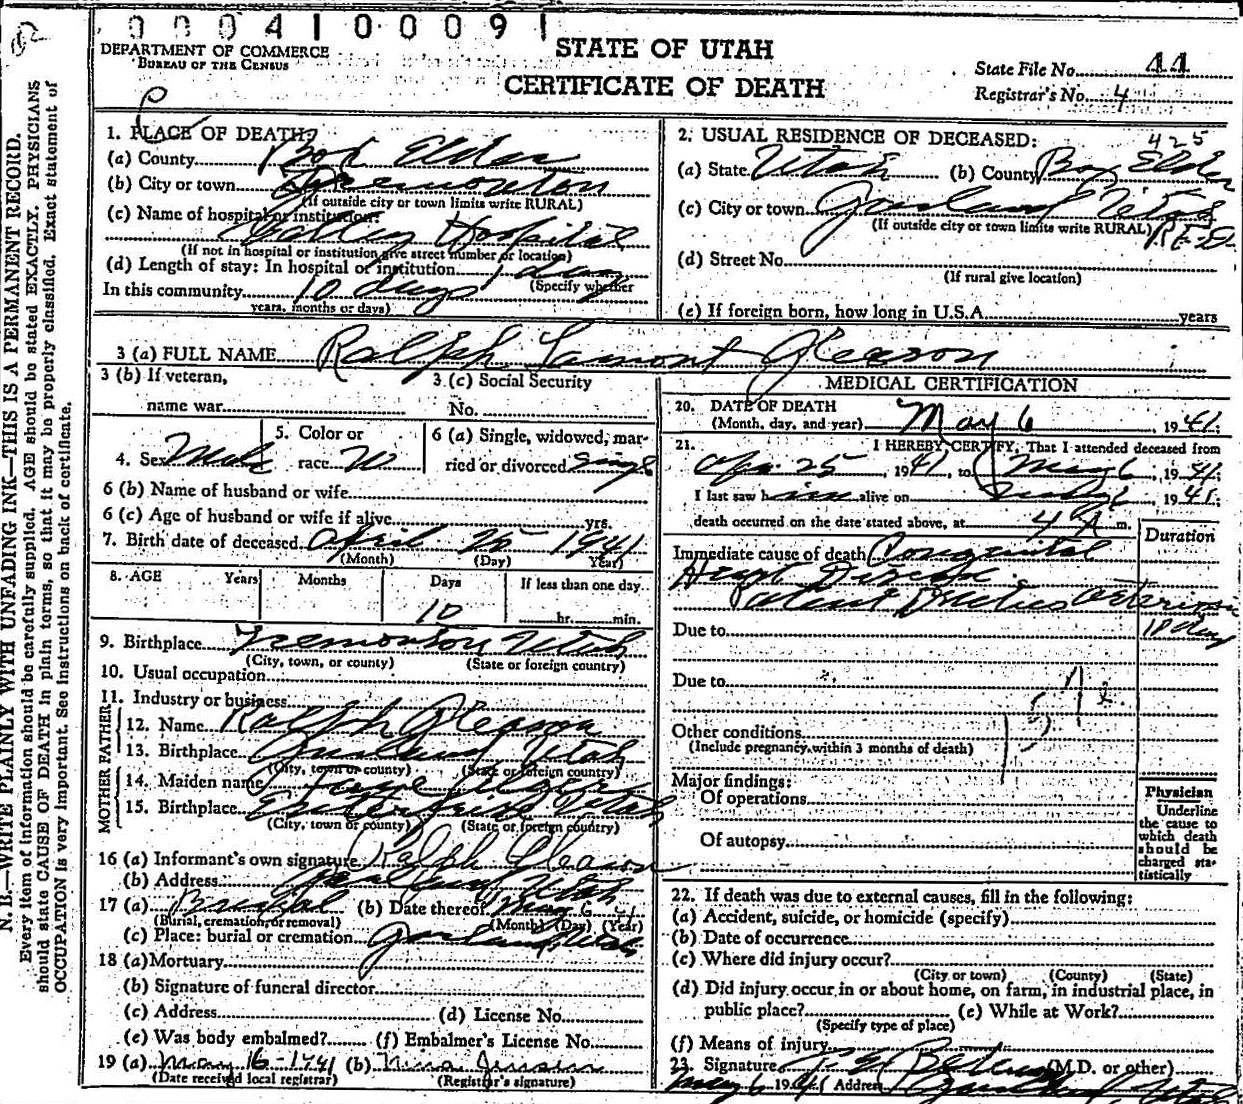 0 0 0 4 1 0 0 0 9 1
DEPARTMENT OF COMMERCE
BUREAU OF THE CENSUS
STATE OF UTAH
CERTIFICATE OF DEATH
State File No. 44
Registrar's No. 4
N. B.—WRITE PLAINLY WITH UNFADING INK—THIS IS A PERMANENT RECORD.
Every item of information should be carefully supplied. AGE should be stated EXACTLY. PHYSICIANS
should state CAUSE OF DEATH in plain terms, so that it may be properly classified. Exact statement of
OCCUPATION is very important. See instructions on back of certificate.
1. PLACE OF DEATH:
(a) County Box Elder
(b) City or town Tremonton
(If outside city or town limits write RURAL)
(c) Name of hospital or institution:
Valley Hospital
(If not in hospital or institution give street number or location)
(d) Length of stay: In hospital or institution 1 day
(Specify whether
In this community 10 days
years, months or days)
2. USUAL RESIDENCE OF DECEASED:
425
(a) State Utah (b) County Box Elder
(c) City or town Garland Utah
(If outside city or town limits write RURAL) R.F.D.
(d) Street No.
(If rural give location)
(e) If foreign born, how long in U.S.A. years
3 (a) FULL NAME Ralph Lamont Gleason
3 (b) If veteran,
name war
3 (c) Social Security
No.
4. Sex Male
5. Color or
race W
6 (a) Single, widowed, mar-
ried or divorced Single
6 (b) Name of husband or wife
6 (c) Age of husband or wife if alive yrs.
7. Birth date of deceased April 25 1941
(Month) (Day) (Year)
8. AGE Years Months Days If less than one day
10 hr. min.
9. Birthplace Tremonton Utah
(City, town, or county) (State or foreign country)
10. Usual occupation
11. Industry or business
FATHER
12. Name Ralph Gleason
13. Birthplace Garland Utah
(City, town or county) (State or foreign country)
MOTHER
14. Maiden name Faye
15. Birthplace Utah
(City, town or county) (State or foreign country)
16 (a) Informant's own signature Ralph Gleason
(b) Address Garland Utah
17 (a) Burial (b) Date thereof May 6 41
(Burial, cremation, or removal) (Month) (Day) (Year)
(c) Place: burial or cremation Garland, Utah
18 (a) Mortuary
(b) Signature of funeral director
(c) Address (d) License No.
(e) Was body embalmed? (f) Embalmer's License No.
19 (a) May 16-1941 (b) Nina Jensen
(Date received local registrar) (Registrar's signature)
MEDICAL CERTIFICATION
20. DATE OF DEATH
(Month, day, and year) May 6, 1941;
21. I HEREBY CERTIFY, That I attended deceased from
Apr. 25, 1941, to May 6, 1941;
I last saw him alive on May 6, 1941;
death occurred on the date stated above, at 4 A m.
Duration
Immediate cause of death Congenital
Heart Disease.
Patent Ductus Arteriosis
10 days
Due to
Due to
157e.
Other conditions
(Include pregnancy within 3 months of death)
Major findings:
Of operations
Of autopsy
Physician
Underline
the cause to
which death
should be
charged sta-
tistically
22. If death was due to external causes, fill in the following:
(a) Accident, suicide, or homicide (specify)
(b) Date of occurrence
(c) Where did injury occur?
(City or town) (County) (State)
(d) Did injury occur in or about home, on farm, in industrial place, in
public place? (e) While at Work?
(Specify type of place)
(f) Means of injury
23. Signature (M.D. or other)
May 6 1941 Address Garland, Utah